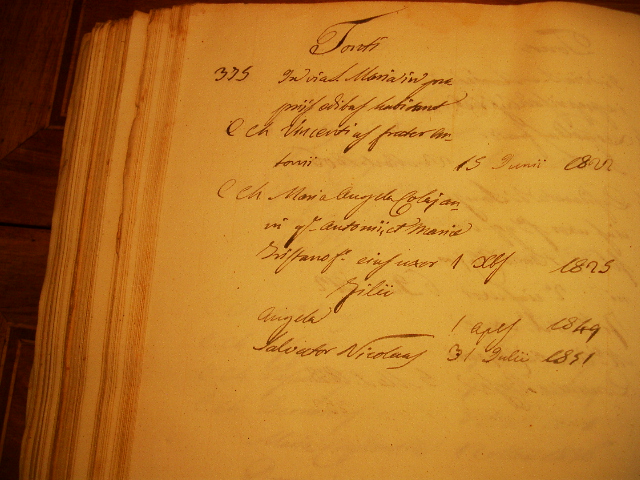 Tonti
375 In via S. Maria in pro
priis edibus habitant
C Ch Vincentius frater An-
tonii 15 Junii 1822
C Ch Maria Angela Colajan-
ni qm Antonii, et Maria
eius uxor 1 Xbs 1825
Filii
Angela 1 aples 1849
Salvator Nicolaus 31 Julii 1851